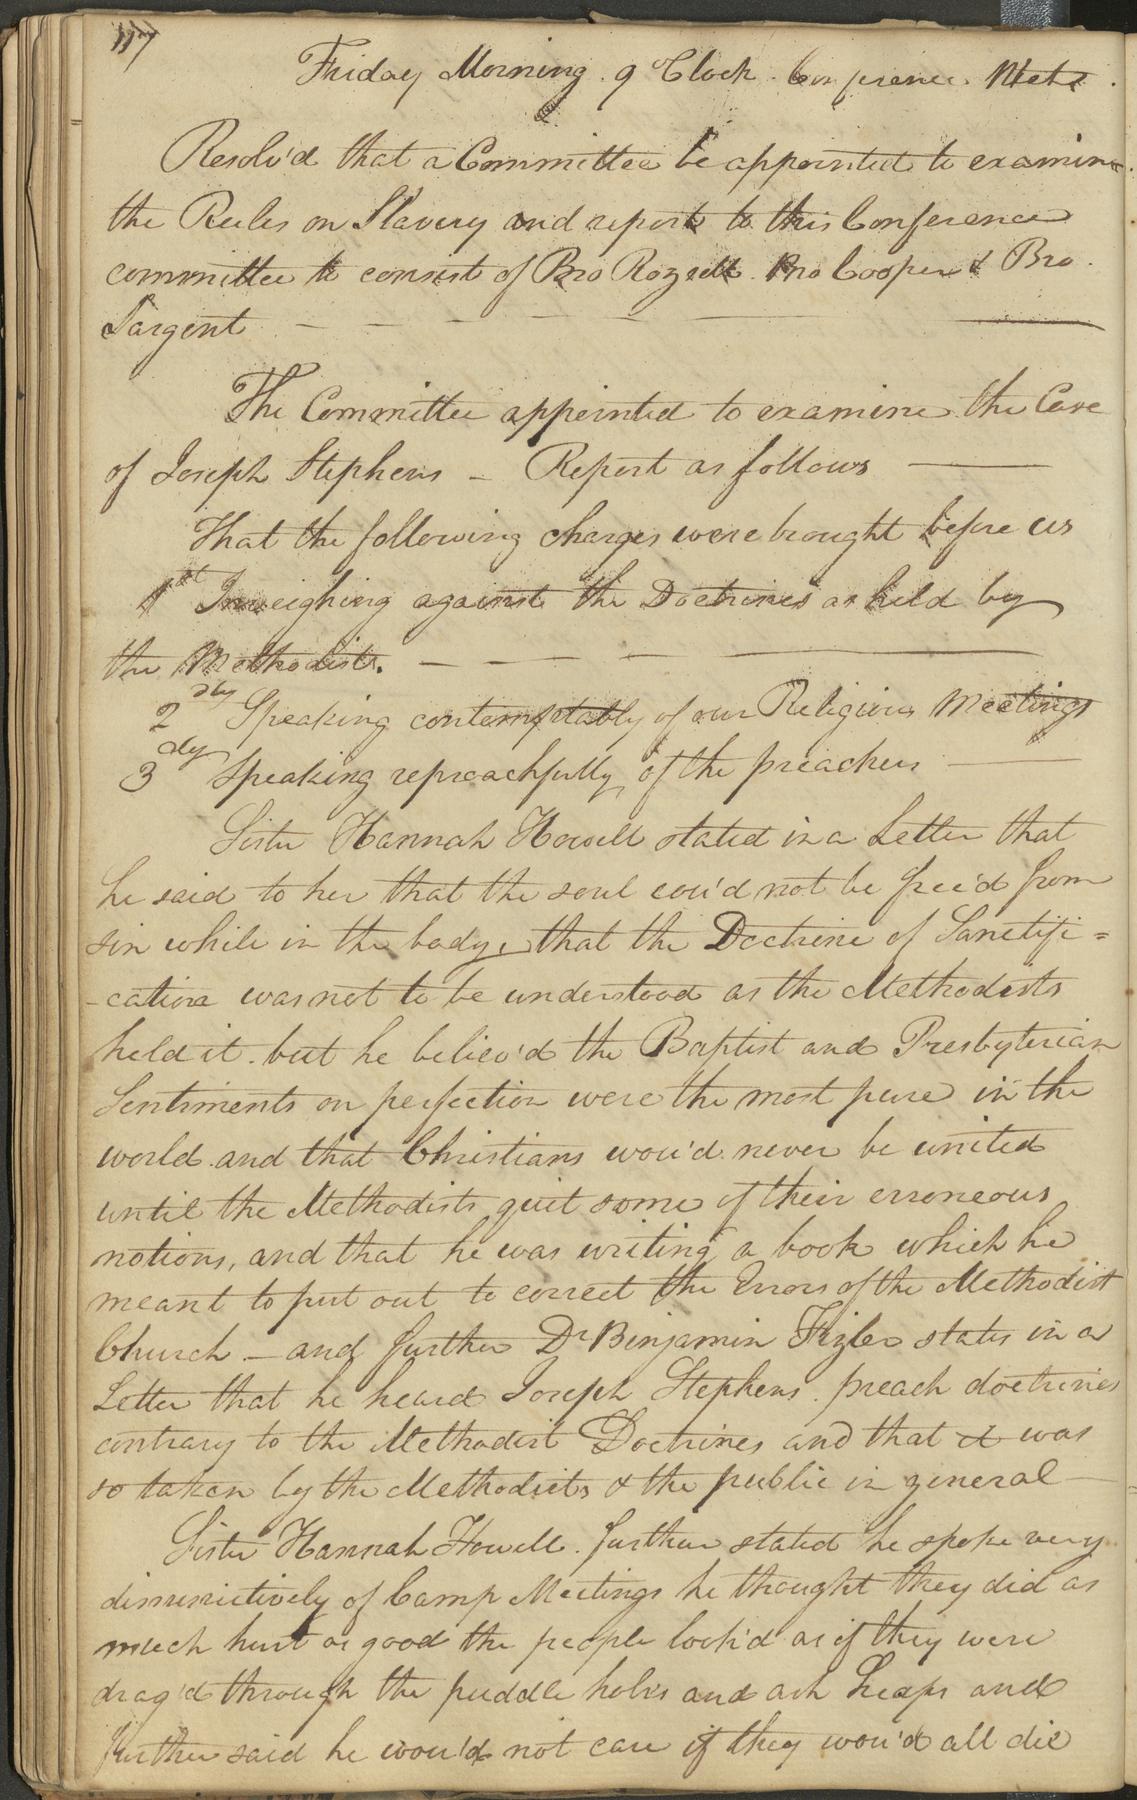 117
Friday Morning. 9 oClock. Conference. Mets.
Resolv'd that a Committee be appointed to examine
the Rules on Slavery and report to this Conference
committee to consist of Bro Rozsell. Bro Cooper & Bro.
Sargent
The Committee appointed to examine the Case
of Joseph Stephens – Report as follows —
That the following charges were brought before us
1st Inveighing against the Doctrines as held by
the Methodists. — — —
2dly Speaking contemptably of our Religious Meetings
3dly Speaking reproachfully of the preachers —
Sister Hannah Howell stated in a Letter that
he said to her that the soul cou'd not be free'd from
sin while in the body, that the Doctrine of Sanctifi=
-cation was not to be understood as the Methodists
held it. but he believ'd the Baptist and Presbyterian
Sentiments on perfection were the most pure in the
world. and that Christians wou'd never be united
until the Methodists quit some of their erroneous
notions, and that he was writing a book which he
meant to put out to correct the Errors of the Methodist
Church – and further Dr Binjamin Fizler states in a
Letter that he heard Joseph Stephens. preach doctrines
contrary to the Methodist Doctrines and that it was
so taken by the Methodists & the public in general —
Sister Hannah Howell. further stated he spoke very
dimunictively of Camp Meetings he thought they did as
much hurt as good the people look'd as if they were
drag'd through the puddle holes and ash heaps and
further said he wou'd not care if they wou'd all die